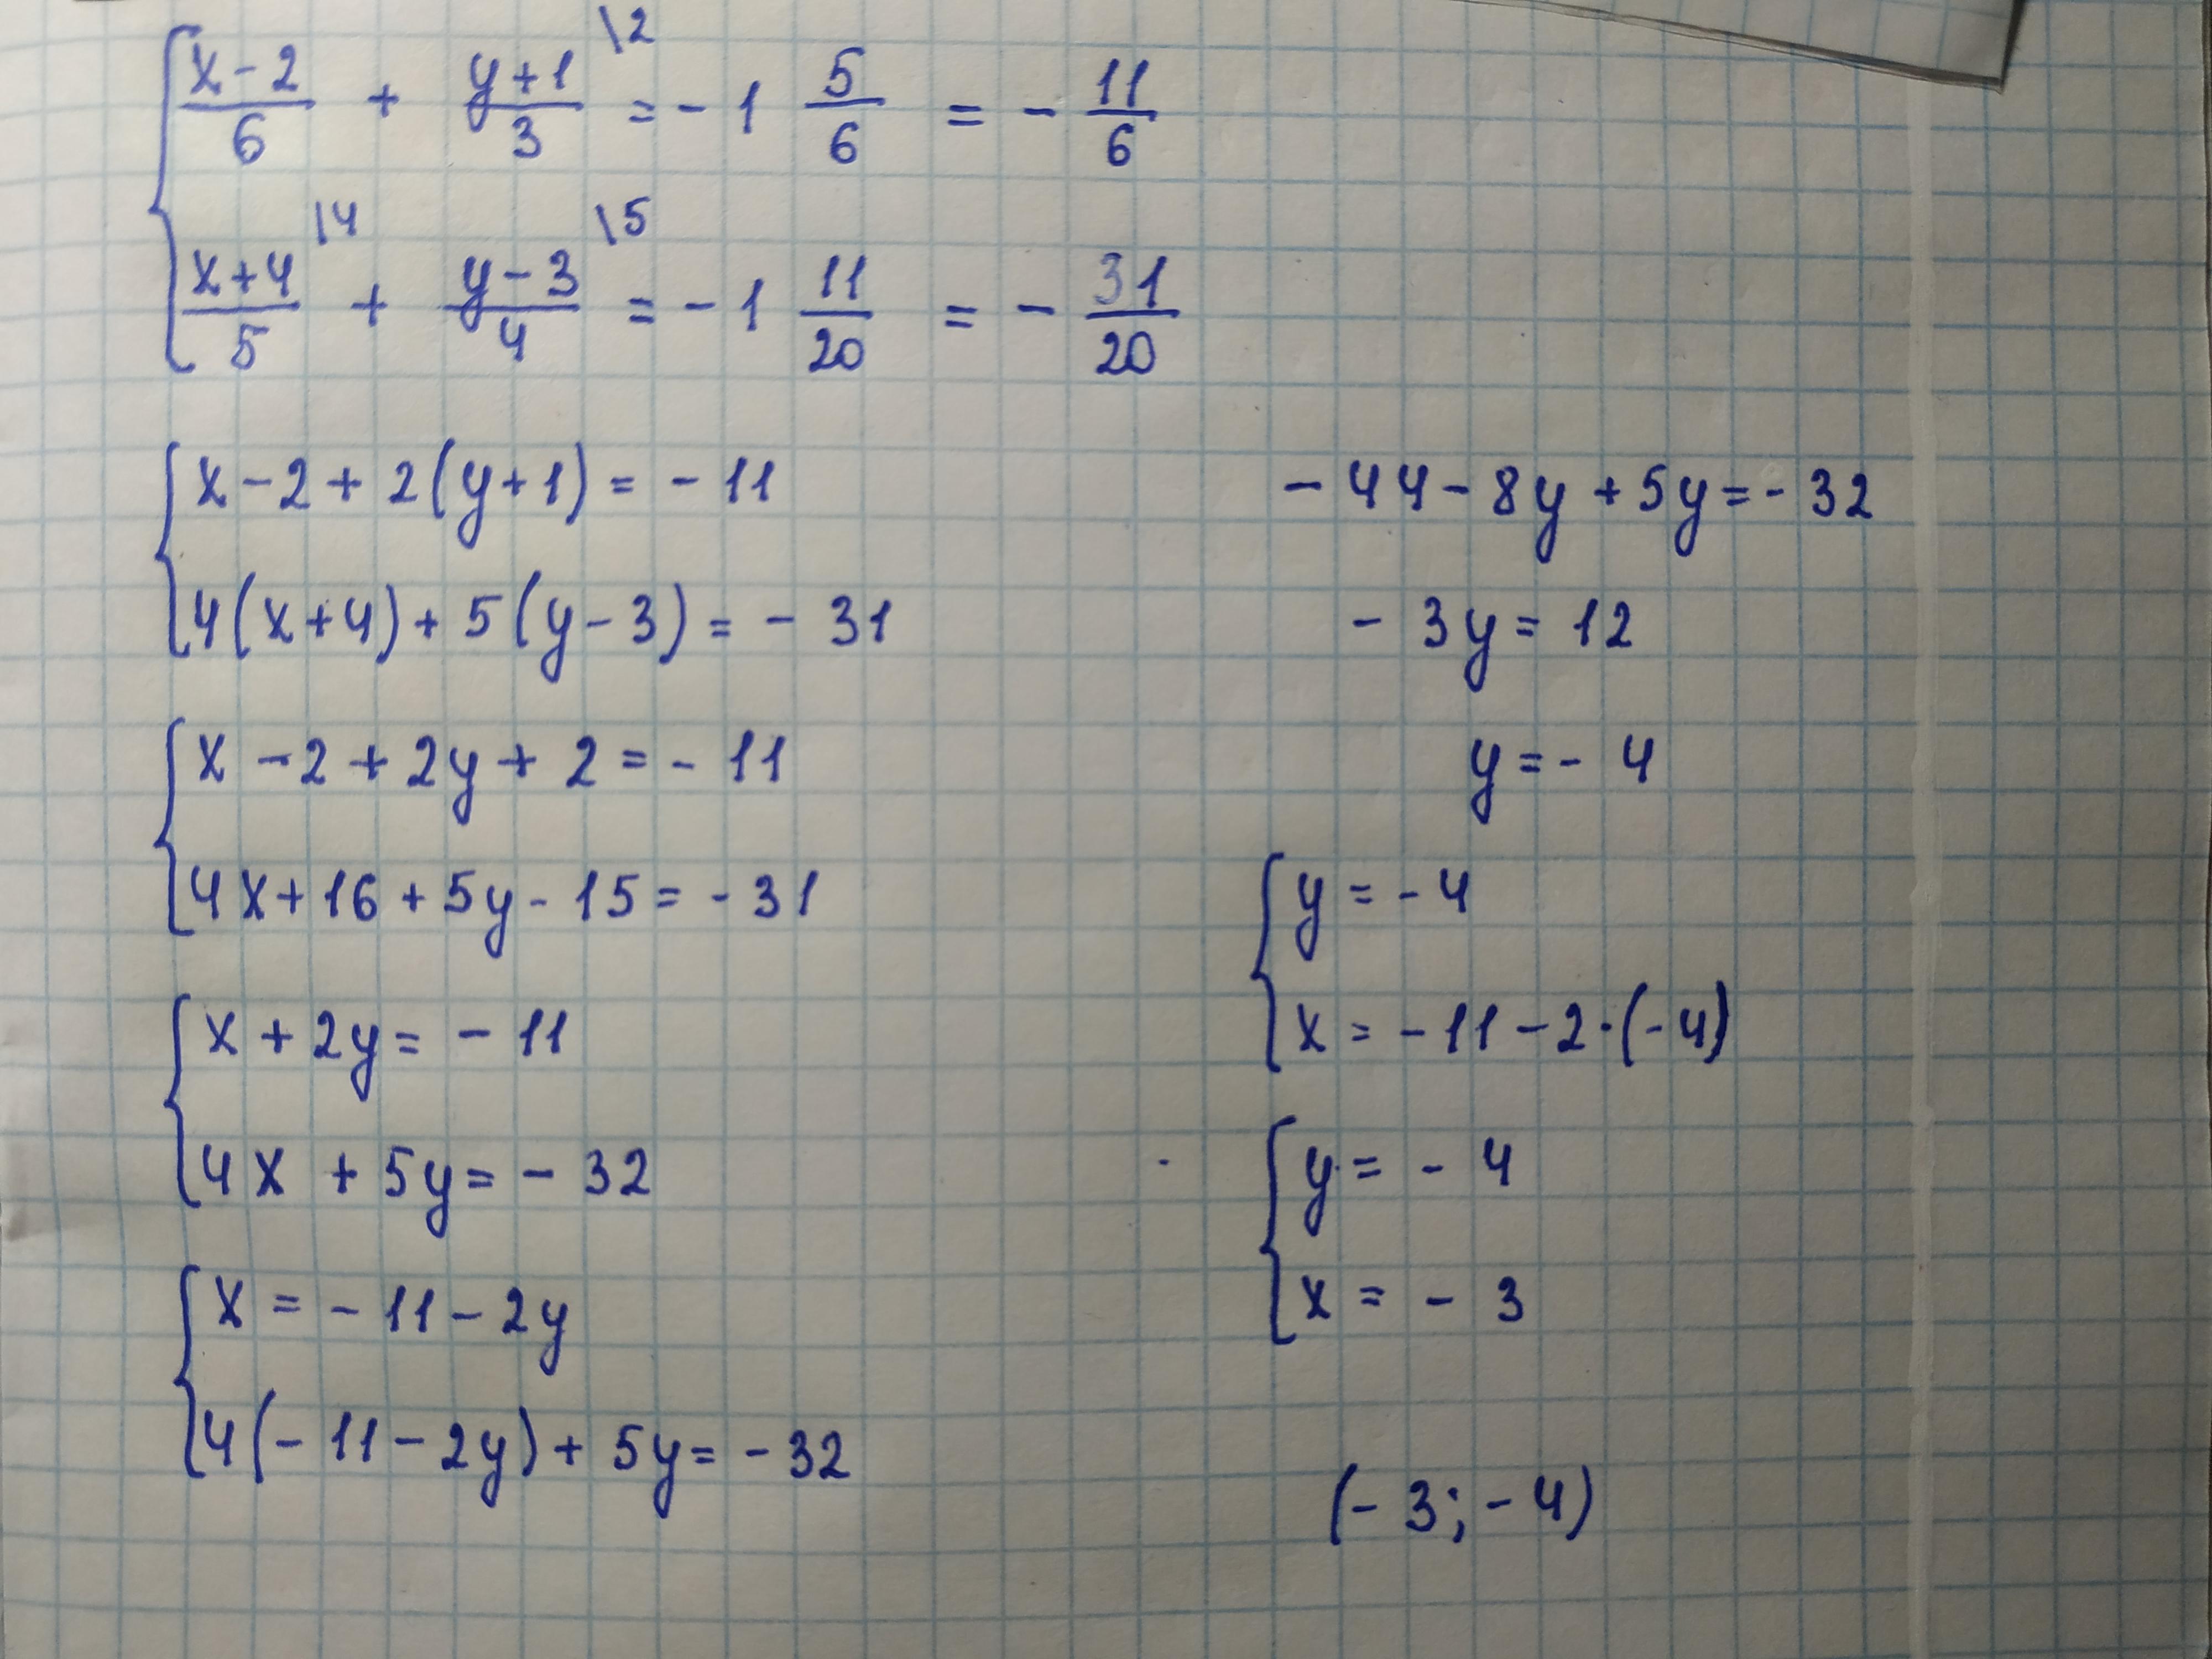 (x-2)/6 + (y+1)/3 \2 = -1 5/6 = - 11/6
(x+4)/5 \4 + (y-3)/4 \5 = -1 11/20 = - 31/20
x-2+2(y+1) = -11
4(x+4)+5(y-3) = -31
x-2+2y+2 = -11
4x+16+5y-15 = -31
x+2y = -11
4x+5y = -32
x = -11-2y
4(-11-2y)+5y = -32
-44-8y+5y = -32
-3y = 12
y = -4
y = -4
x = -11-2·(-4)
y = -4
x = -3
(-3; -4)